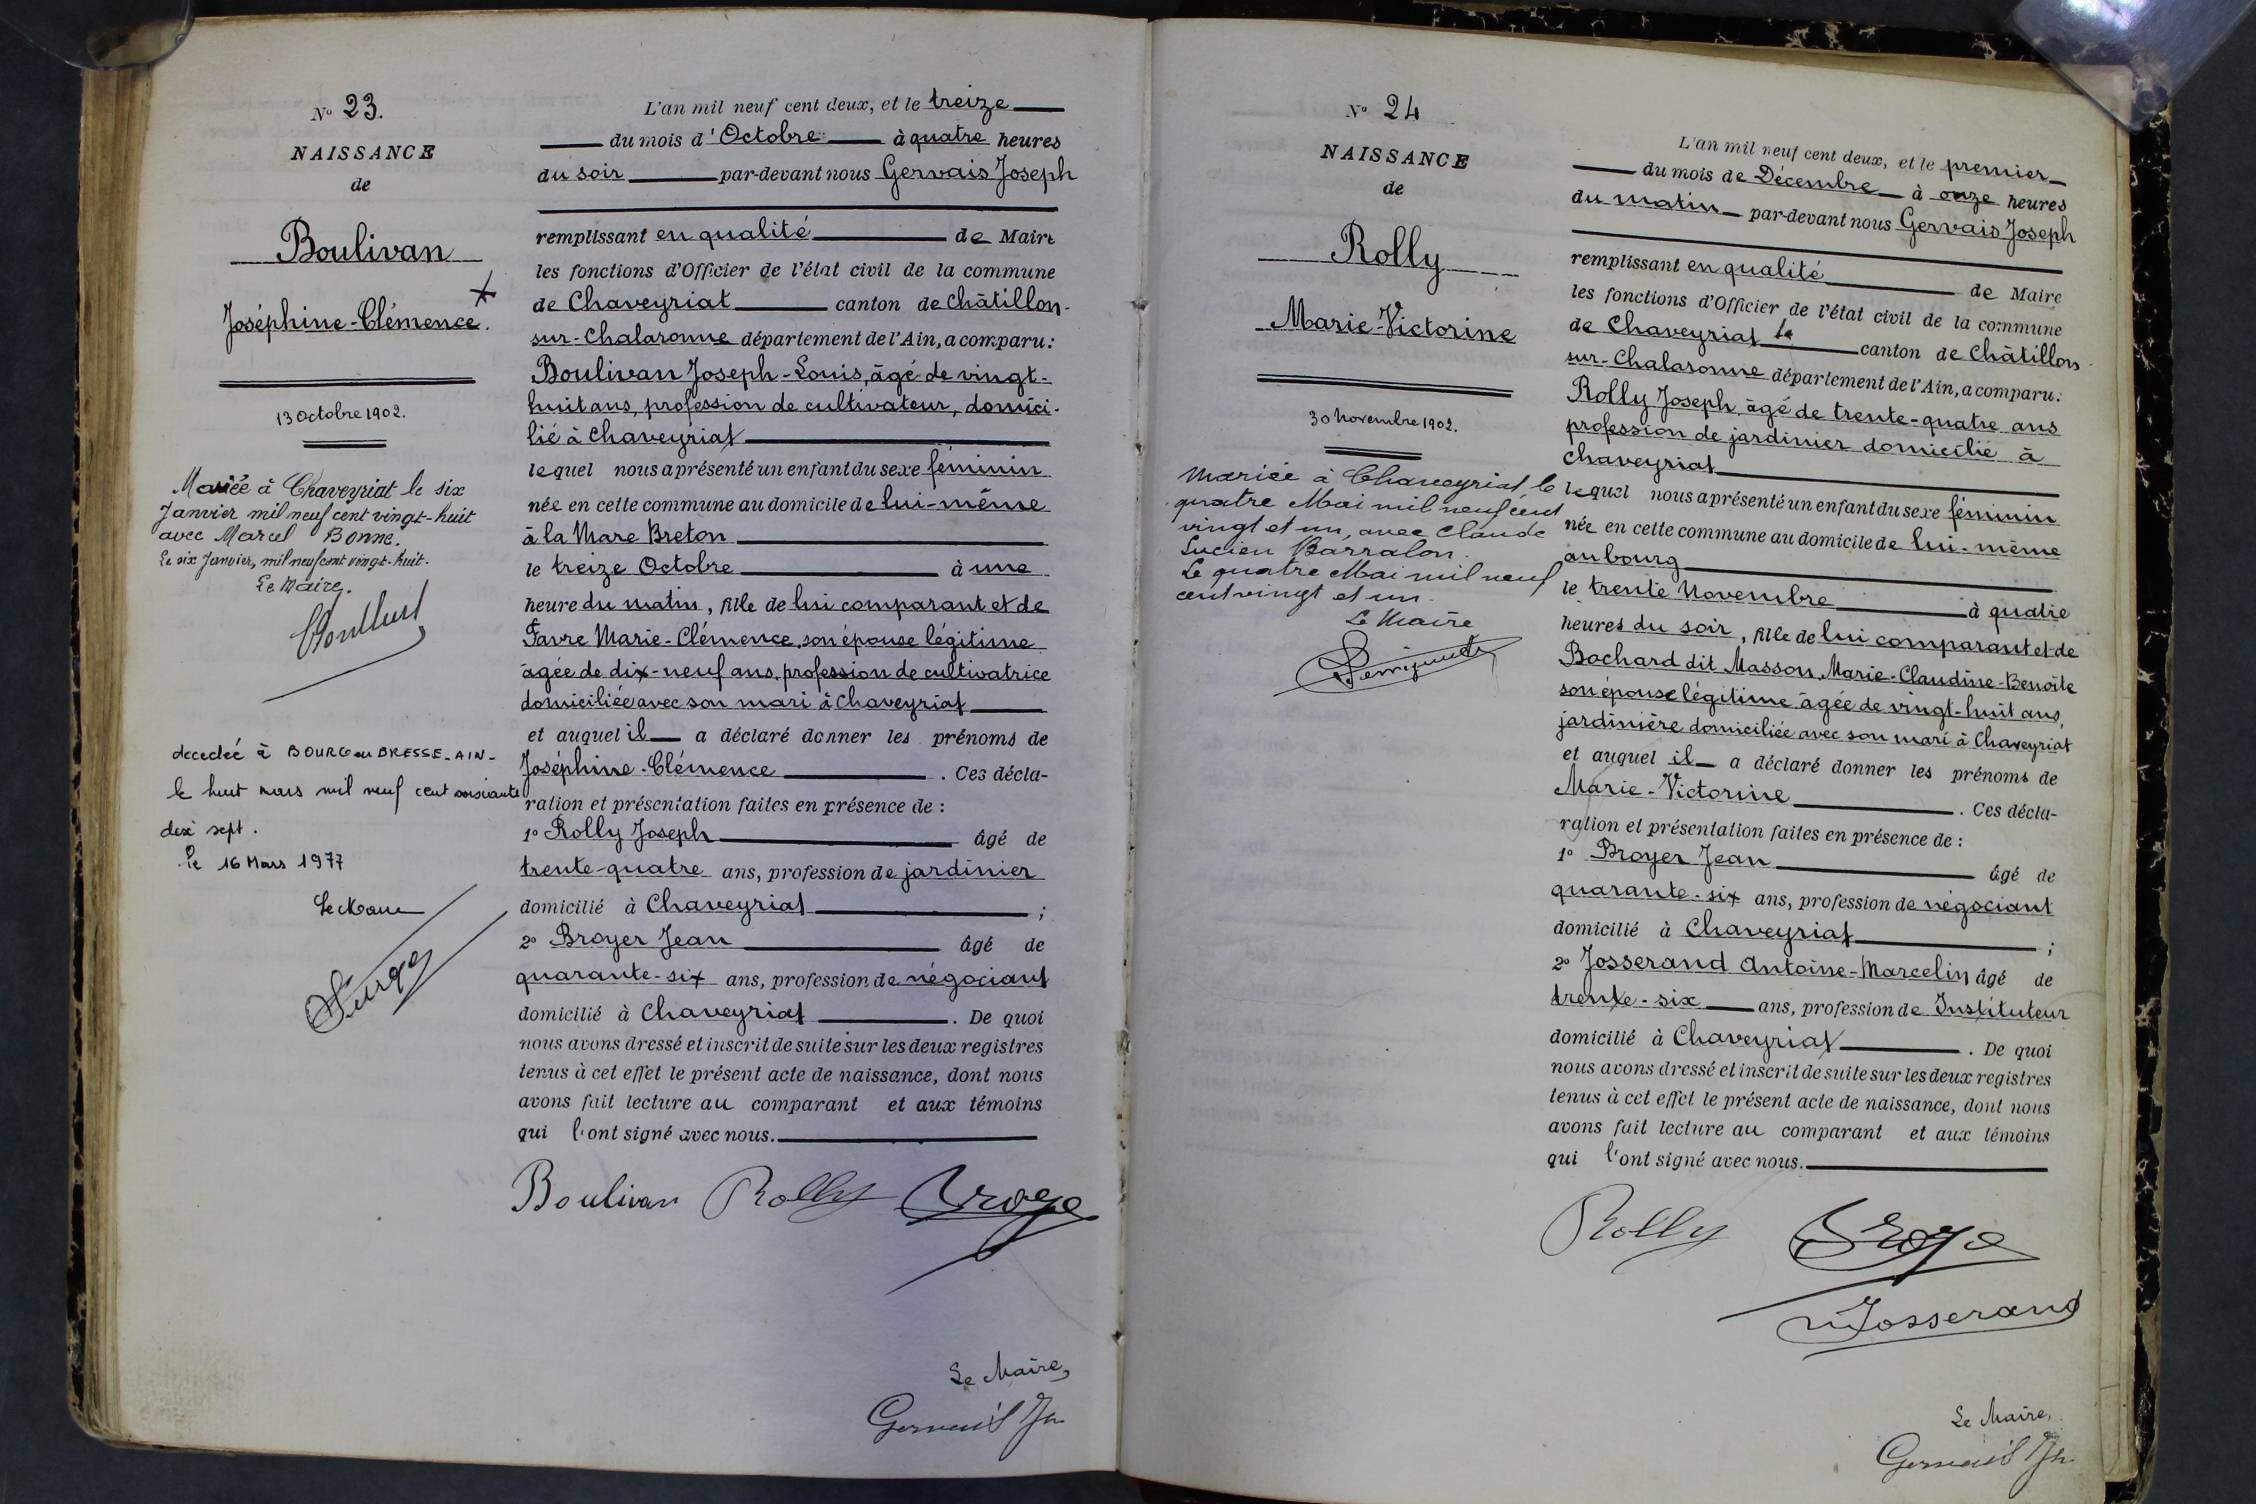 N° 23.
NAISSANCE
de
Boulivan
Joséphine-Clémence.
13 Octobre 1902.
Mariée à Chaveyriat le six
Janvier mil neuf cent vingt-huit
avec Marcel Bonne.
Le six Janvier, mil neuf cent vingt-huit.
Le Maire.
decedée à BOURG en BRESSE-AIN-
le huit mars mil neuf cent soixante
dix sept.
le 16 Mars 1977
Le Maire
L'an mil neuf cent deux, et le treize
du mois d'Octobre à quatre heures
du soir par-devant nous Gervais Joseph
remplissant en qualité de Maire
les fonctions d'Officier de l'état civil de la commune
de Chaveyriat canton de Châtillon-
sur-Chalaronne département de l'Ain, a comparu:
Boulivan Joseph-Louis, âgé de vingt-
huit ans, profession de cultivateur, domici-
lié à Chaveyriat
lequel nous a présenté un enfant du sexe féminin
née en cette commune au domicile de lui-même
à la Mare Breton
le treize Octobre à une
heure du matin, fille de lui comparant et de
Favre Marie-Clémence, son épouse légitime
âgée de dix-neuf ans, profession de cultivatrice
domiciliée avec son mari à Chaveyriat
et auquel il a déclaré donner les prénoms de
Joséphine-Clémence. Ces décla-
ration et présentation faites en présence de :
1° Rolly Joseph âgé de
trente-quatre ans, profession de jardinier
domicilié à Chaveyriat ;
2° Broyer Jean âgé de
quarante-six ans, profession de négociant
domicilié à Chaveyriat. De quoi
nous avons dressé et inscrit de suite sur les deux registres
tenus à cet effet le présent acte de naissance, dont nous
avons fait lecture au comparant et aux témoins
qui l'ont signé avec nous.
Boulivan Rolly Broye
Le Maire,
Gervais Jh
N° 24
NAISSANCE
de
Rolly
Marie-Victorine
30 Novembre 1902.
Mariée à Chaveyriat, le
quatre Mai mil neuf cent
vingt et un, avec Claude
Lucien Barralon.
Le quatre Mai mil neuf
cent vingt et un.
Le Maire
L'an mil neuf cent deux, et le premier
du mois de Décembre à onze heures
du matin par-devant nous Gervais Joseph
remplissant en qualité de Maire
les fonctions d'Officier de l'état civil de la commune
de Chaveyriat canton de Châtillon
sur-Chalaronne département de l'Ain, a comparu:
Rolly Joseph, âgé de trente-quatre ans
profession de jardinier domicilié à
Chaveyriat
lequel nous a présenté un enfant du sexe féminin
née en cette commune au domicile de lui-même
au bourg
le trente Novembre à quatre
heures du soir, fille de lui comparant et de
Bachard dit Masson, Marie-Claudine-Benoîte
son épouse légitime âgée de vingt-huit ans,
jardinière domiciliée avec son mari à Chaveyriat
et auquel il a déclaré donner les prénoms de
Marie-Victorine. Ces décla-
ration et présentation faites en présence de :
1° Broyer Jean âgé de
quarante-six ans, profession de négociant
domicilié à Chaveyriat ;
2° Josserand Antoine-Marcelin, âgé de
trente-six ans, profession de Instituteur
domicilié à Chaveyriat. De quoi
nous avons dressé et inscrit de suite sur les deux registres
tenus à cet effet le présent acte de naissance, dont nous
avons fait lecture au comparant et aux témoins
qui l'ont signé avec nous.
Rolly Broye
Josserand
Le Maire,
Gervais Jh